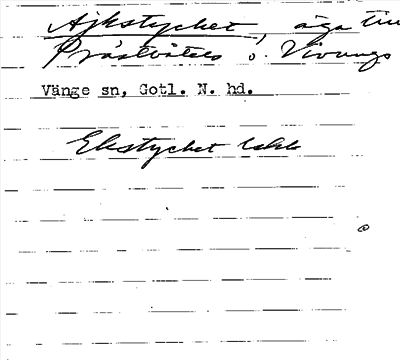 Ajkstycket, äga till
Prästvätes o. Vivungs
Vänge sn, Gotl. N. hd.
Ekstycket